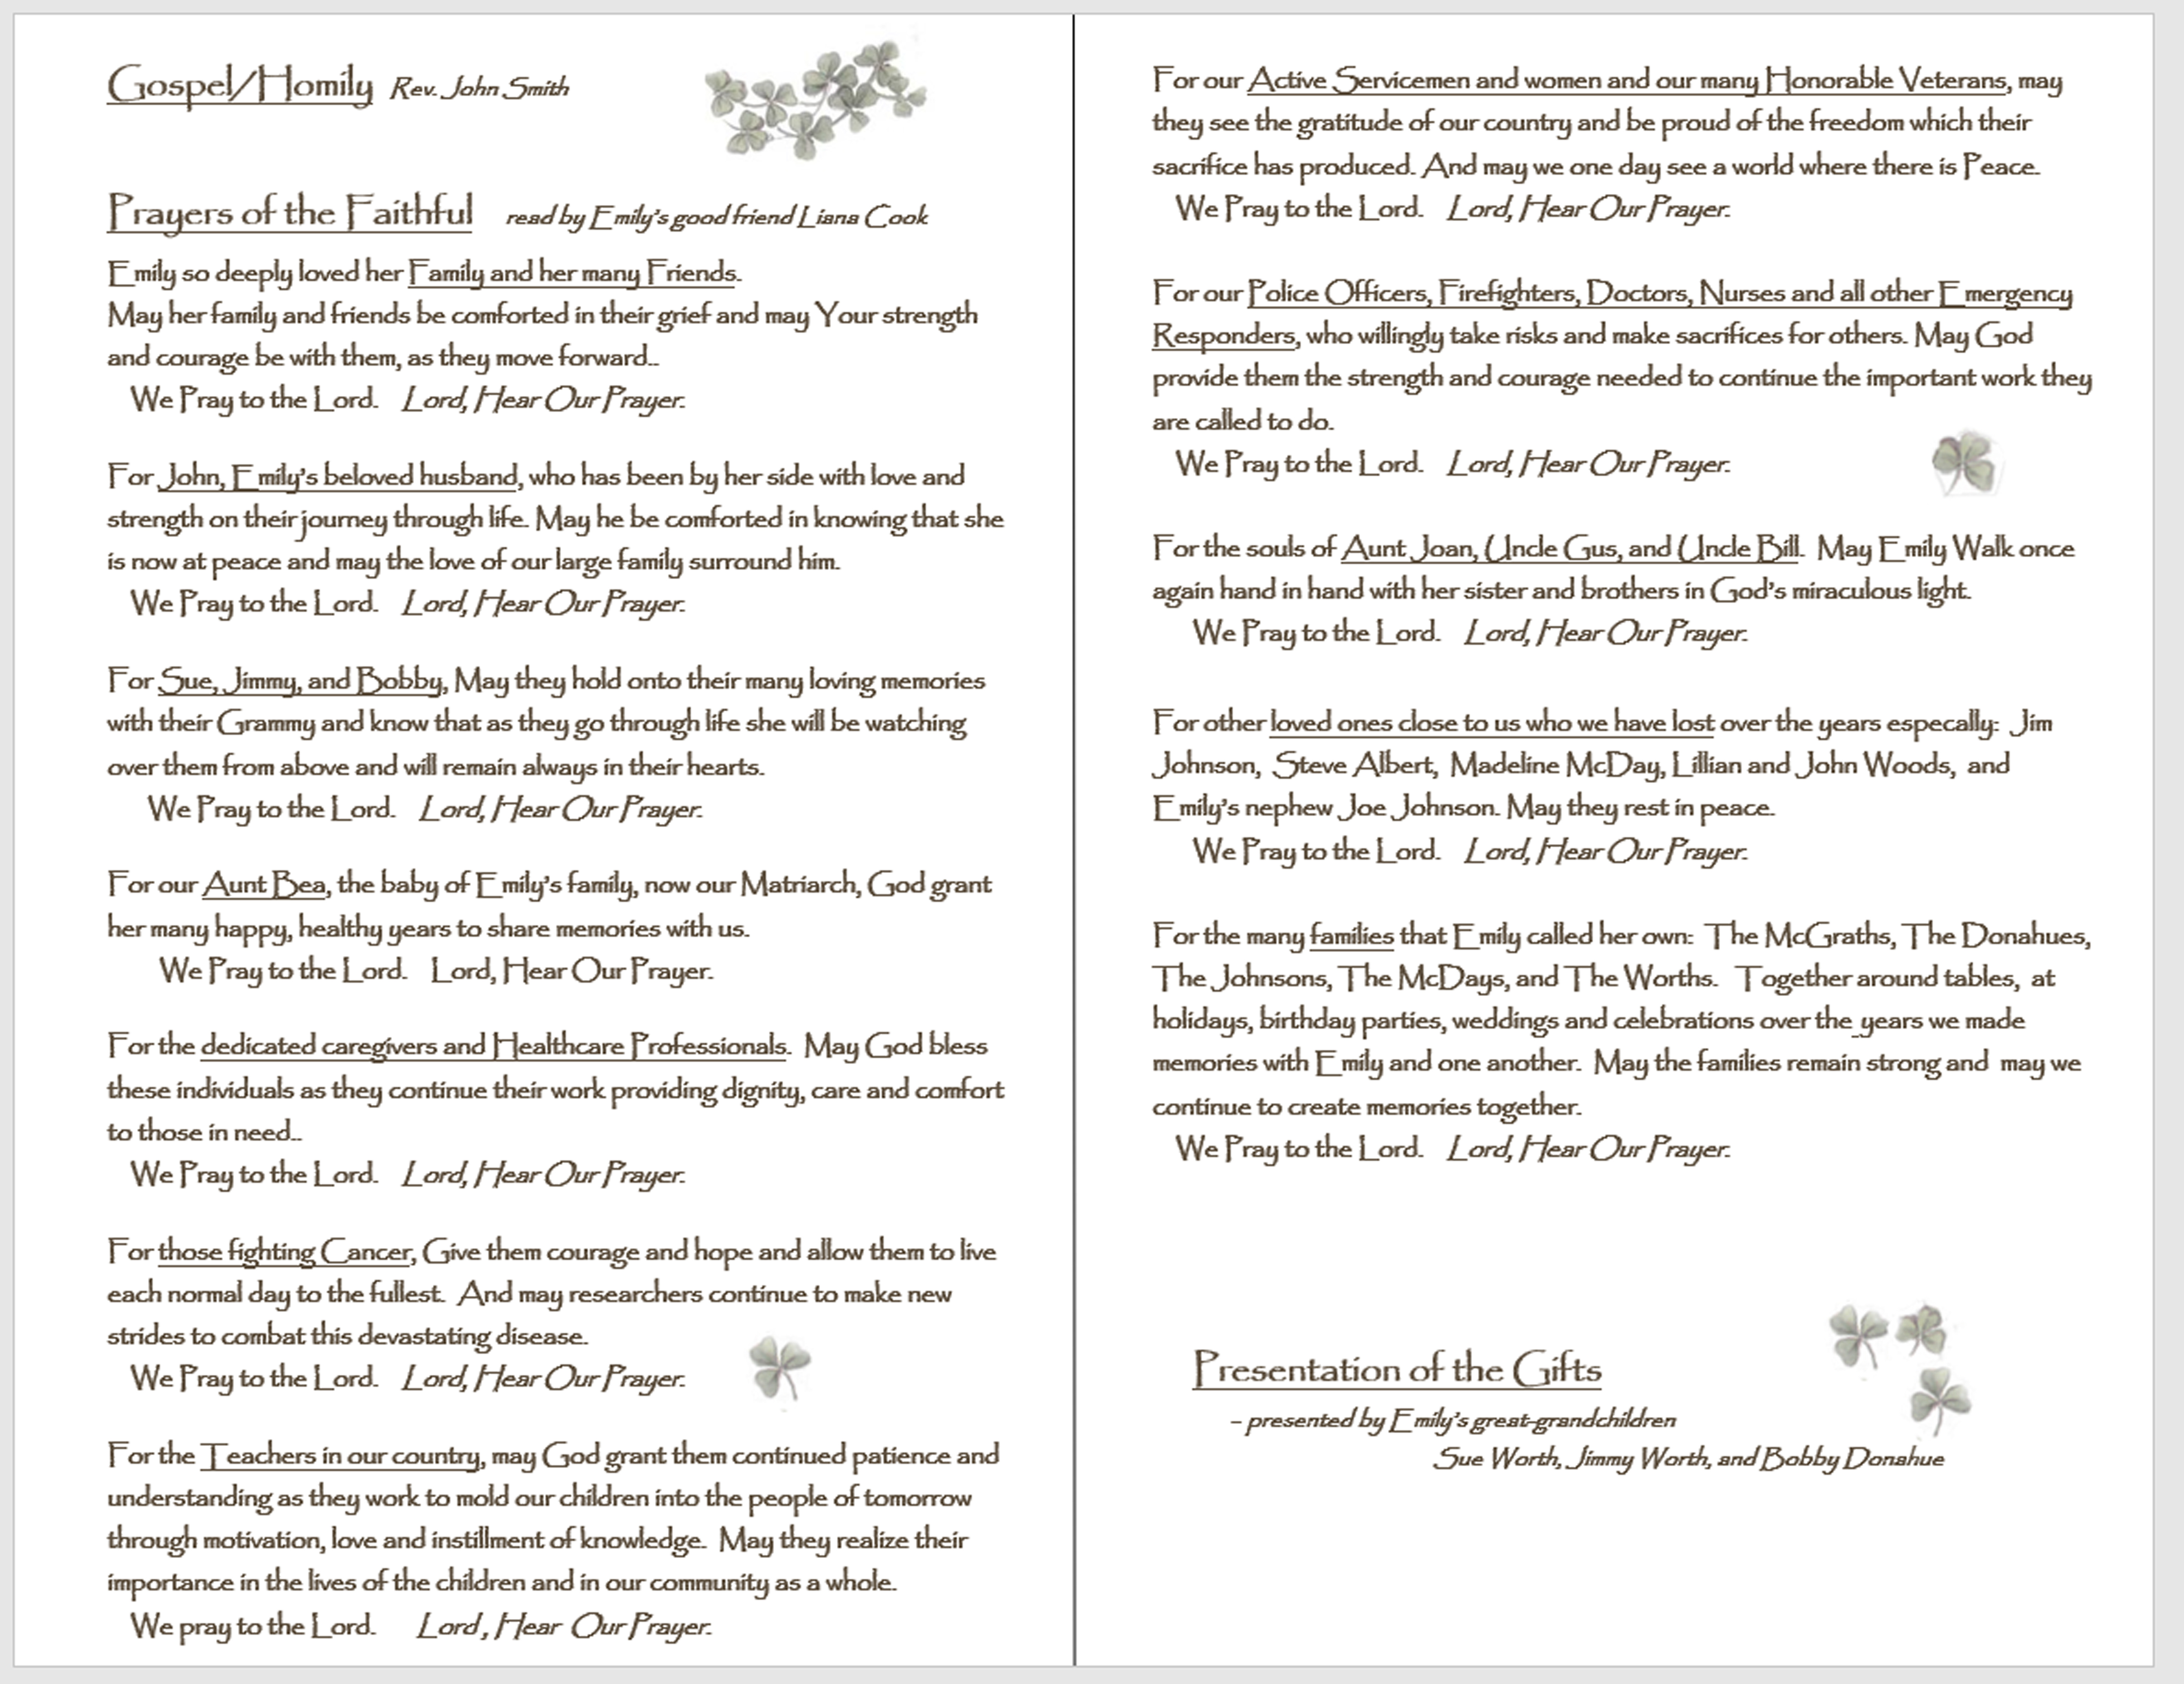 Gospel/Homily Rev. John Smith
Prayers of the Faithful read by Emily's good friend Liana Cook
Emily so deeply loved her Family and her many Friends.
May her family and friends be comforted in their grief and may Your strength
and courage be with them, as they move forward..
We Pray to the Lord. Lord, Hear Our Prayer.
For John, Emily's beloved husband, who has been by her side with love and
strength on their journey through life. May he be comforted in knowing that she
is now at peace and may the love of our large family surround him.
We Pray to the Lord. Lord, Hear Our Prayer.
For Sue, Jimmy, and Bobby, May they hold onto their many loving memories
with their Grammy and know that as they go through life she will be watching
over them from above and will remain always in their hearts.
We Pray to the Lord. Lord, Hear Our Prayer.
For our Aunt Bea, the baby of Emily's family, now our Matriarch, God grant
her many happy, healthy years to share memories with us.
We Pray to the Lord. Lord, Hear Our Prayer.
For the dedicated caregivers and Healthcare Professionals. May God bless
these individuals as they continue their work providing dignity, care and comfort
to those in need..
We Pray to the Lord. Lord, Hear Our Prayer.
For those fighting Cancer, Give them courage and hope and allow them to live
each normal day to the fullest. And may researchers continue to make new
strides to combat this devastating disease.
We Pray to the Lord. Lord, Hear Our Prayer.
For the Teachers in our country, may God grant them continued patience and
understanding as they work to mold our children into the people of tomorrow
through motivation, love and instillment of knowledge. May they realize their
importance in the lives of the children and in our community as a whole.
We pray to the Lord. Lord, Hear Our Prayer.
For our Active Servicemen and women and our many Honorable Veterans, may
they see the gratitude of our country and be proud of the freedom which their
sacrifice has produced. And may we one day see a world where there is Peace.
We Pray to the Lord. Lord, Hear Our Prayer.
For our Police Officers, Firefighters, Doctors, Nurses and all other Emergency
Responders, who willingly take risks and make sacrifices for others. May God
provide them the strength and courage needed to continue the important work they
are called to do.
We Pray to the Lord. Lord, Hear Our Prayer.
For the souls of Aunt Joan, Uncle Gus, and Uncle Bill. May Emily Walk once
again hand in hand with her sister and brothers in God's miraculous light.
We Pray to the Lord. Lord, Hear Our Prayer.
For other loved ones close to us who we have lost over the years especally: Jim
Johnson, Steve Albert, Madeline McDay, Lillian and John Woods, and
Emily's nephew Joe Johnson. May they rest in peace.
We Pray to the Lord. Lord, Hear Our Prayer.
For the many families that Emily called her own: The McGraths, The Donahues,
The Johnsons, The McDays, and The Worths. Together around tables, at
holidays, birthday parties, weddings and celebrations over the years we made
memories with Emily and one another. May the families remain strong and may we
continue to create memories together.
We Pray to the Lord. Lord, Hear Our Prayer.
Presentation of the Gifts
- presented by Emily's great-grandchildren
Sue Worth, Jimmy Worth, and Bobby Donahue